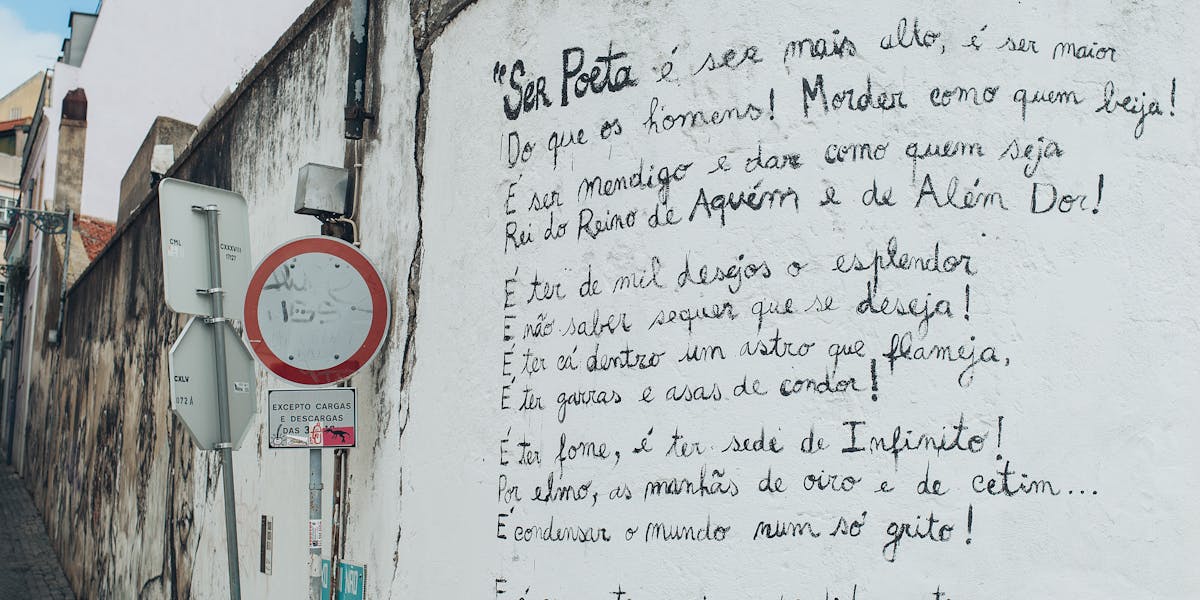 "Ser Poeta é ser mais alto, é ser maior
Do que os homens! Morder como quem beija!
É ser mendigo e dar como quem seja
Rei do Reino de Aquém e de Além Dor!
É ter de mil desejos o esplendor
E não saber sequer que se deseja!
É ter cá dentro um astro que flameja,
É ter garras e asas de condor!
É ter fome, é ter sede de Infinito!
Por elmo, as manhãs de oiro e de cetim...
É condensar o mundo num só grito!
CML
CXXXVIII
1727
CXLV
072 A
EXCEPTO CARGAS
E DESCARGAS
DAS